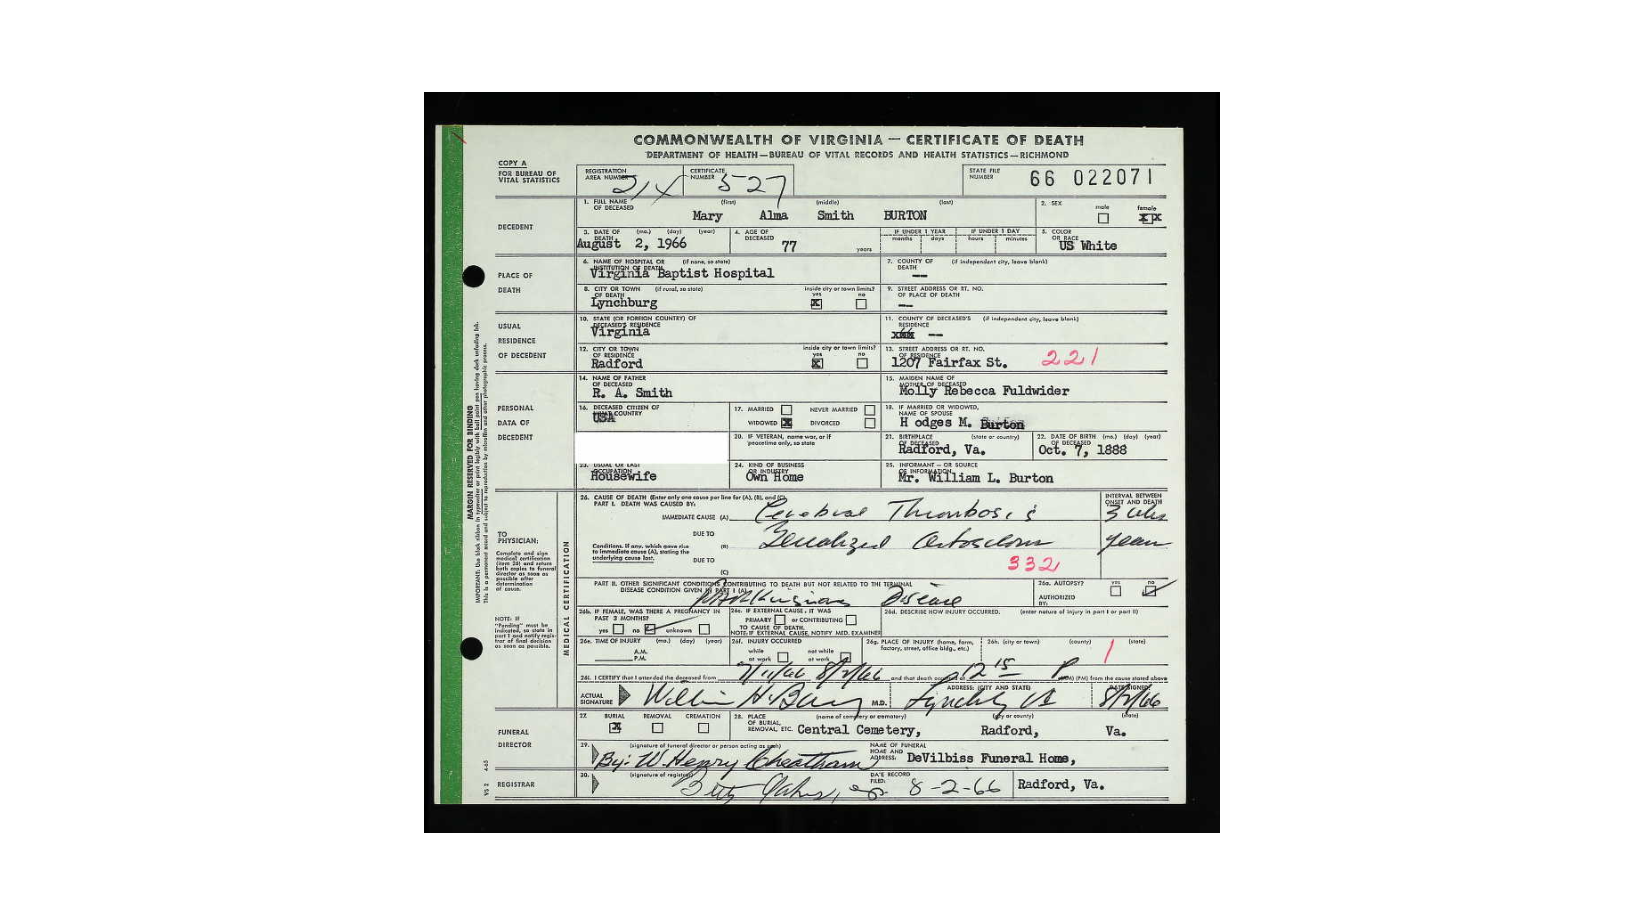 COMMONWEALTH OF VIRGINIA — CERTIFICATE OF DEATH
DEPARTMENT OF HEALTH—BUREAU OF VITAL RECORDS AND HEALTH STATISTICS—RICHMOND
COPY A
FOR BUREAU OF VITAL STATISTICS
REGISTRATION AREA NUMBER
CERTIFICATE NUMBER 527
STATE FILE NUMBER 66 022071
DECEDENT
1. FULL NAME OF DECEASED (first) (middle) (last)
Mary Alma Smith BURTON
2. SEX male female
3. DATE OF DEATH (mo.) (day) (year)
August 2, 1966
4. AGE OF DECEASED 77 years
IF UNDER 1 YEAR months days
IF UNDER 1 DAY hours minutes
5. COLOR OR RACE
US White
PLACE OF DEATH
6. NAME OF HOSPITAL OR INSTITUTION OF DEATH (if none, so state)
Virginia Baptist Hospital
7. COUNTY OF DEATH (if independent city, leave blank)
—
8. CITY OR TOWN OF DEATH (if rural, so state)
Lynchburg
inside city or town limits? yes X no
9. STREET ADDRESS OR RT. NO. OF PLACE OF DEATH
—
USUAL RESIDENCE OF DECEDENT
10. STATE (OR FOREIGN COUNTRY) OF DECEASED'S RESIDENCE
Virginia
11. COUNTY OF DECEASED'S RESIDENCE (if independent city, leave blank)
—
12. CITY OR TOWN OF RESIDENCE
Radford
inside city or town limits? yes X no
13. STREET ADDRESS OR RT. NO. OF RESIDENCE
1207 Fairfax St. 221
PERSONAL DATA OF DECEDENT
14. NAME OF FATHER OF DECEASED
R. A. Smith
15. MAIDEN NAME OF MOTHER OF DECEASED
Molly Rebecca Fuldwider
16. DECEASED CITIZEN OF WHAT COUNTRY
USA
17. MARRIED NEVER MARRIED
WIDOWED X DIVORCED
18. IF MARRIED OR WIDOWED, NAME OF SPOUSE
H odges M. Burton
20. IF VETERAN, name war, or if peacetime only, so state
21. BIRTHPLACE OF DECEASED (state or country)
Radford, Va.
22. DATE OF BIRTH OF DECEASED (mo.) (day) (year)
Oct. 7, 1888
23. USUAL OR LAST OCCUPATION
Housewife
24. KIND OF BUSINESS OR INDUSTRY
Own Home
25. INFORMANT — OR SOURCE OF INFORMATION
Mr. William L. Burton
MARGIN RESERVED FOR BINDING
TO PHYSICIAN:
Complete and sign medical certification (item 26) and return both copies to funeral director as soon as possible after determination of cause.
NOTE: If "Pending" must be indicated, so state in part 1 and notify registrar of final decision as soon as possible.
MEDICAL CERTIFICATION
26. CAUSE OF DEATH (Enter only one cause per line for (A), (B), and (C))
PART I. DEATH WAS CAUSED BY:
INTERVAL BETWEEN ONSET AND DEATH
IMMEDIATE CAUSE (A) Cerebral Thrombosis 3 wks
DUE TO
Conditions, if any, which gave rise to immediate cause (A), stating the underlying cause last.
(B) Generalized
DUE TO
(C)
332
PART II. OTHER SIGNIFICANT CONDITIONS CONTRIBUTING TO DEATH BUT NOT RELATED TO THE TERMINAL DISEASE CONDITION GIVEN IN PART I (A)
Parkinsons Disease
26a. AUTOPSY? yes no
AUTHORIZED BY:
26b. IF FEMALE, WAS THERE A PREGNANCY IN PAST 3 MONTHS?
yes no unknown
26c. IF EXTERNAL CAUSE, IT WAS
PRIMARY or CONTRIBUTING
TO CAUSE OF DEATH.
NOTE: IF EXTERNAL CAUSE, NOTIFY MED. EXAMINER
26d. DESCRIBE HOW INJURY OCCURRED. (enter nature of injury in part I or part II)
26e. TIME OF INJURY (mo.) (day) (year)
A.M.
P.M.
26f. INJURY OCCURRED
while at work not while at work
26g. PLACE OF INJURY (home, farm, factory, street, office bldg., etc.)
26h. (city or town) (county) (state)
1
26i. I CERTIFY that I attended the deceased from 7/11/66 8/2/66 and that death occurred at 12 15 P (AM) (PM) from the cause stated above
ACTUAL SIGNATURE M.D.
ADDRESS: (CITY AND STATE)
DATE SIGNED:
8/2/66
FUNERAL DIRECTOR
27. BURIAL X REMOVAL CREMATION
28. PLACE OF BURIAL, REMOVAL, ETC. (name of cemetery or crematory) (city or county) (state)
Central Cemetery, Radford, Va.
29. (signature of funeral director or person acting as such)
By: W. Henry Cheatham
NAME OF FUNERAL HOME AND ADDRESS:
DeVilbiss Funeral Home,
Radford, Va.
REGISTRAR
30. (signature of registrar)
DATE RECORD FILED: 8-2-66
VS 2 4-65